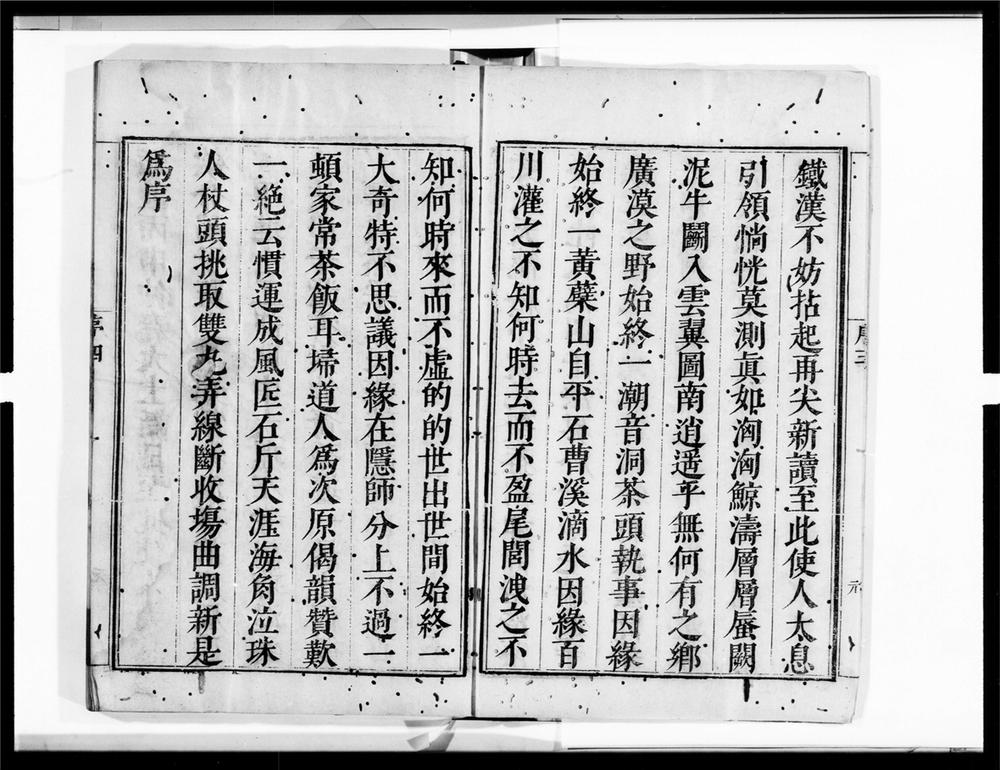 鐵漢不妨拈起再尖新讀至此使人太息
引領惝恍莫測眞如洶洶鯨濤層層蜃闕
泥牛鬭入雲翼圖南逍遥乎無何有之鄉
廣漠之野始終一潮音洞茶頭執事因緣
始終一黃蘗山自平石曹溪滴水因緣百
川灌之不知何時去而不盈尾閭洩之不
序三
知何時來而不虛的的世出世間始終一
大奇特不思議因緣在隱師分上不過一
頓家常茶飯耳埽道人爲次原偈韻贊歎
一絕云慣運成風匠石斤天涯海角泣珠
人杖頭挑取雙丸弄線斷收塲曲調新是
爲序
序四